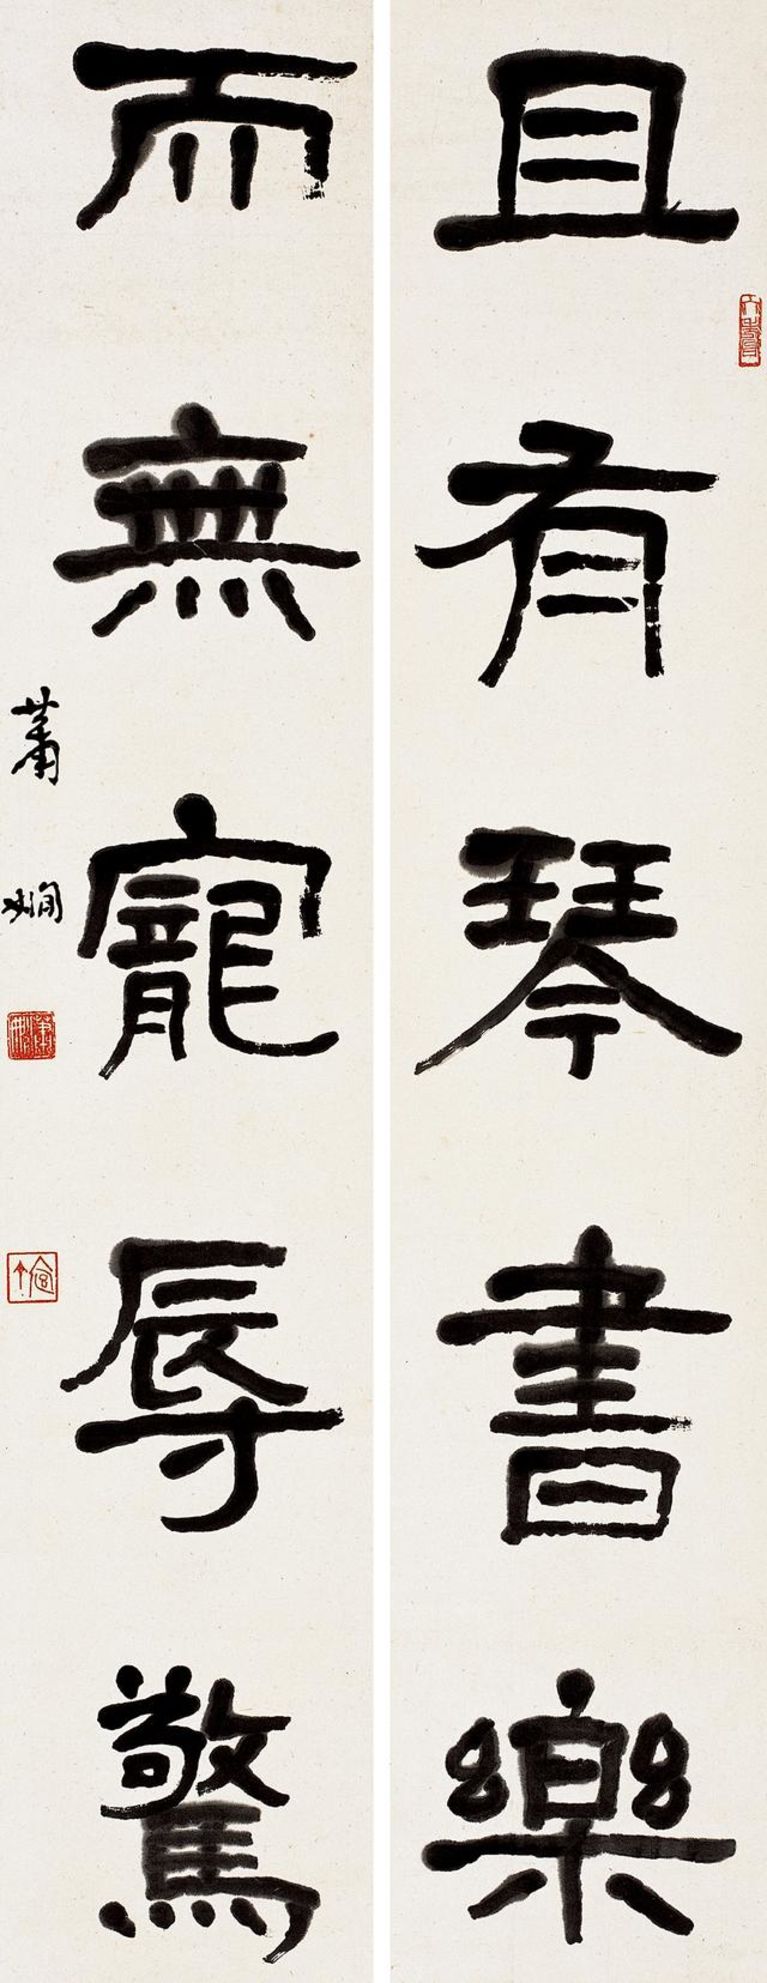 且有琴書樂
而無寵辱驚
蕭嫻